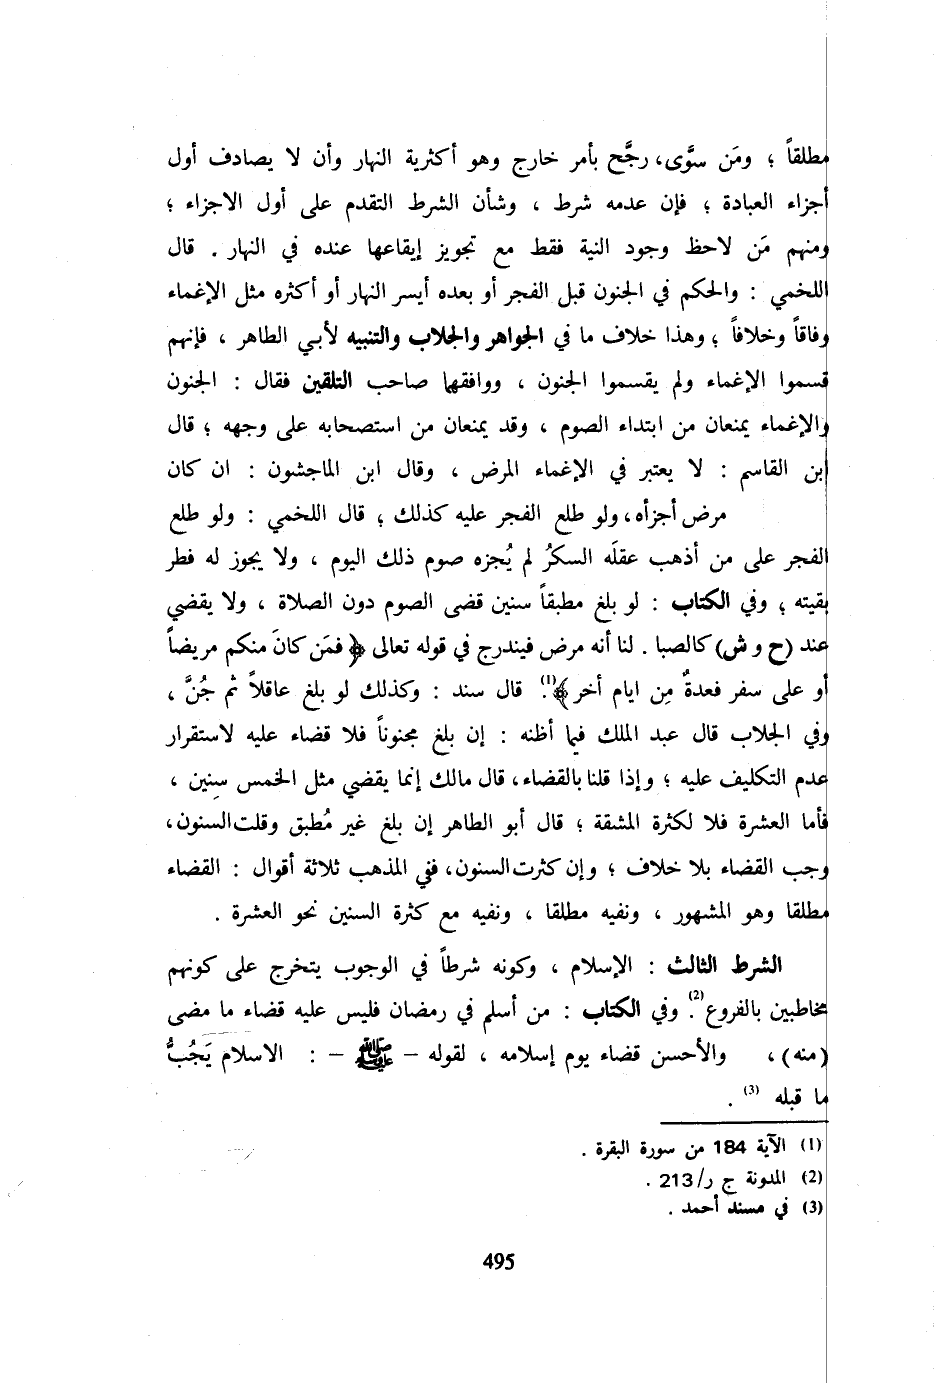 مطلقاً ؛ ومَن سوَّى، رجَّح بأمر خارج وهو أكثرية النهار وأن لا يصادف أول
أجزاء العبادة ؛ فإن عدمه شرط ، وشأن الشرط التقدم على أول الاجزاء ؛
ومنهم مَن لاحظ وجود النية فقط مع تجويز إيقاعها عنده في النهار . قال
اللخمي : والحكم في الجنون قبل الفجر أو بعده أيسر النهار أو أكثره مثل الإغماء
وفاقاً وخلافاً ؛ وهذا خلاف ما في الجواهر والجلاب والتنبيه لأبي الطاهر ، فإنهم
قسموا الإغماء ولم يقسموا الجنون ، ووافقها صاحب التلقين فقال : الجنون
والإغماء يمنعان من ابتداء الصوم ، وقد يمنعان من استصحابه على وجهه ؛ قال
ابن القاسم : لا يعتبر في الإغماء المرض ، وقال ابن الماجشون : ان كان
مرض أجزأه، ولو طلع الفجر عليه كذلك ؛ قال اللخمي : ولو طلع
الفجر على من أذهب عقلَه السكرُ لم يُجزه صوم ذلك اليوم ، ولا يجوز له فطر
بقيته ؛ وفي الكتاب : لو بلغ مطبقاً سنين قضى الصوم دون الصلاة ، ولا يقضي
عند (ح و ش) كالصبا . لنا أنه مرض فيندرج في قوله تعالى ﴿ فمَن كانَ منكم مريضاً
أو على سفر فعدةٌ مِن ايام أخر﴾(1). قال سند : وكذلك لو بلغ عاقلاً ثم جُنَّ ،
وفي الجلاب قال عبد الملك فيما أظنه : إن بلغ مجنوناً فلا قضاء عليه لاستقرار
عدم التكليف عليه ؛ وإذا قلنا بالقضاء، قال مالك إنما يقضي مثل الخمس سنين ،
فأما العشرة فلا لكثرة المشقة ؛ قال أبو الطاهر إن بلغ غير مُطبق وقلت السنون،
وجب القضاء بلا خلاف ؛ وإن كثرت السنون، ففي المذهب ثلاثة أقوال : القضاء
مطلقا وهو المشهور ، ونفيه مطلقا ، ونفيه مع كثرة السنين نحو العشرة .
الشرط الثالث : الإسلام ، وكونه شرطاً في الوجوب يتخرج على كونهم
مخاطبين بالفروع(2). وفي الكتاب : من أسلم في رمضان فليس عليه قضاء ما مضى
(منه) ، والأحسن قضاء يوم إسلامه ، لقوله – ﷺ – : الاسلام يَجُبُّ
ما قبله (3) .
(1) الآية 184 من سورة البقرة .
(2) المدونة ج ر/213 .
(3) في مسند أحمد .
495